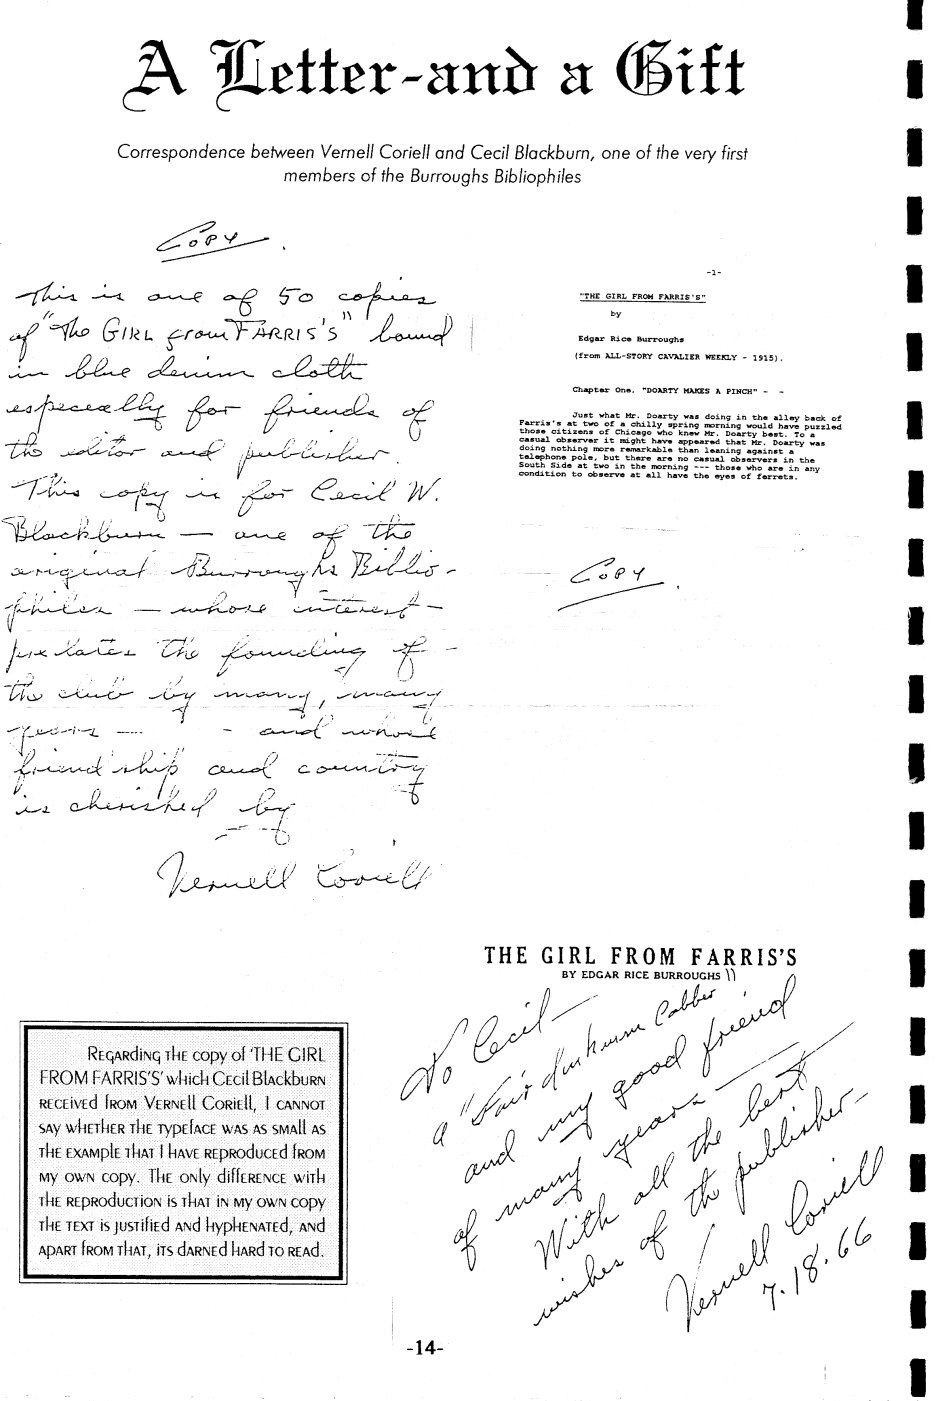 A Letter-and a Gift
Correspondence between Vernell Coriell and Cecil Blackburn, one of the very first
members of the Burroughs Bibliophiles
COPY.
This is one of 50 copies
of "The GIRL from FARRIS'S" bound
in blue denim cloth
especially for friends of
the editor and publisher.
This copy is for Cecil W.
Blackburn — one of the
original Burroughs Biblio-
philes — whose interest -
prelates the founding of -
the club by many, many
years — - and whose
friendship and country
is cherished by
Vernell Coriell
-1-
"THE GIRL FROM FARRIS'S"
by
Edgar Rice Burroughs
(from ALL-STORY CAVALIER WEEKLY - 1915).
Chapter One. "DOARTY MAKES A PINCH" - -
Just what Mr. Doarty was doing in the alley back of
Farris's at two of a chilly spring morning would have puzzled
those citizens of Chicago who knew Mr. Doarty best. To a
casual observer it might have appeared that Mr. Doarty was
doing nothing more remarkable than leaning against a
telephone pole, but there are no casual observers in the
South Side at two in the morning --- those who are in any
condition to observe at all have the eyes of ferrets.
COPY.
THE GIRL FROM FARRIS'S
BY EDGAR RICE BURROUGHS
To Cecil —
a "Fair dinkum Cobber"
and my good friend
of many years —
With all the best
wishes of the publisher —
Vernell Coriell
7.18.66
REGARDING THE copy of 'THE GIRL
FROM FARRIS'S' which Cecil Blackburn
RECEIVED FROM VERNELL CORIELL, I CANNOT
SAY WHETHER THE TYPEFACE WAS AS SMALL AS
THE EXAMPLE THAT I HAVE REPRODUCED FROM
MY OWN COPY. THE ONLY DIFFERENCE WITH
THE REPRODUCTION IS THAT IN MY OWN COPY
THE TEXT IS JUSTIFIED AND HYPHENATED, AND
APART FROM THAT, ITS DARNED HARD TO READ.
-14-